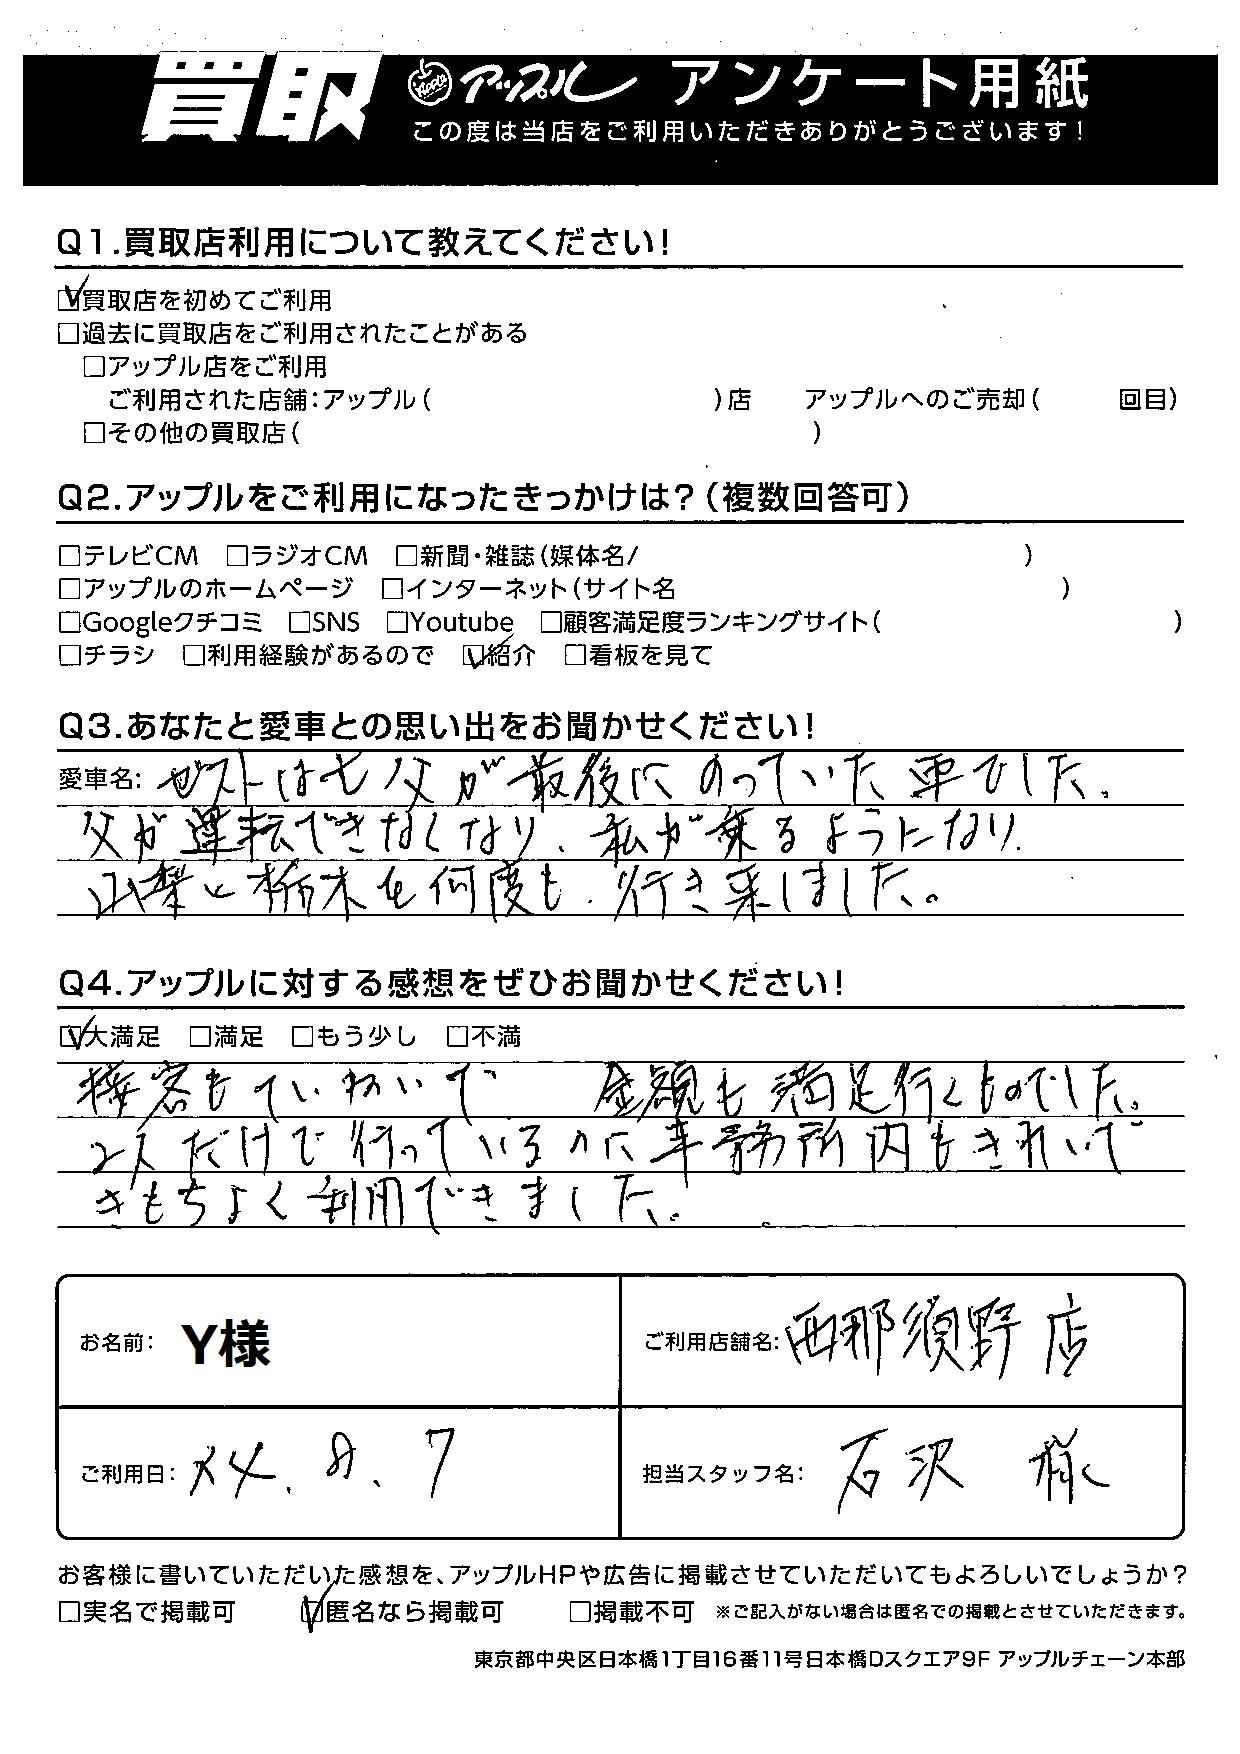 買取 Apple アップル アンケート用紙
この度は当店をご利用いただきありがとうございます!
Q1.買取店利用について教えてください!
☑買取店を初めてご利用
□過去に買取店をご利用されたことがある
□アップル店をご利用
ご利用された店舗:アップル( )店 アップルへのご売却( 回目)
□その他の買取店( )
Q2.アップルをご利用になったきっかけは?(複数回答可)
□テレビCM □ラジオCM □新聞・雑誌(媒体名/ )
□アップルのホームページ □インターネット(サイト名 )
□Googleクチコミ □SNS □Youtube □顧客満足度ランキングサイト( )
□チラシ □利用経験があるので ☑紹介 □看板を見て
Q3.あなたと愛車との思い出をお聞かせください!
愛車名: ゼストは亡父が最後にのっていた車でした。
父が運転できなくなり、私が乗るようになり、
山梨と栃木を何度も、行き来しました。
Q4.アップルに対する感想をぜひお聞かせください!
☑大満足 □満足 □もう少し □不満
接客もていねいで 金額も満足行くものでした。
2人だけで行っているのに事務所内もきれいで
きもちよく利用できました。
お名前: Y様
ご利用店舗名: 西那須野店
ご利用日: 24.8.7
担当スタッフ名: 石沢 様
お客様に書いていただいた感想を、アップルHPや広告に掲載させていただいてもよろしいでしょうか?
□実名で掲載可 ☑匿名なら掲載可 □掲載不可 ※ご記入がない場合は匿名での掲載とさせていただきます。
東京都中央区日本橋1丁目16番11号日本橋Dスクエア9F アップルチェーン本部